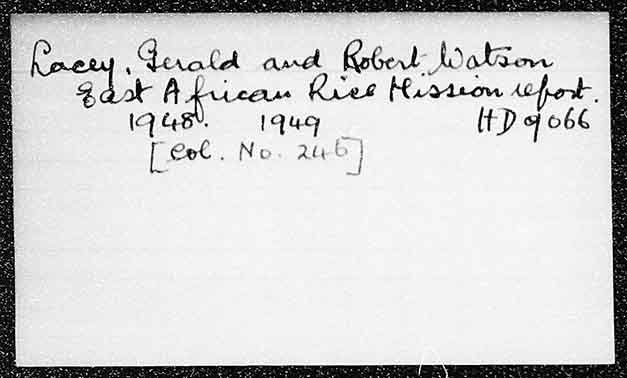 Lacey, Gerald and Robert Watson
East African Rice Mission report.
1948. 1949 HD 9066
[Col. No. 246]